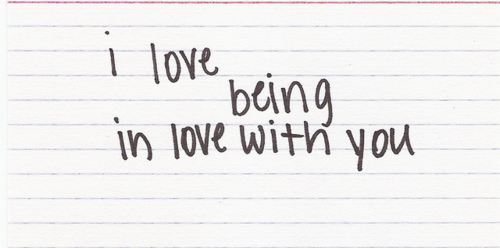 i love
being
in love with you